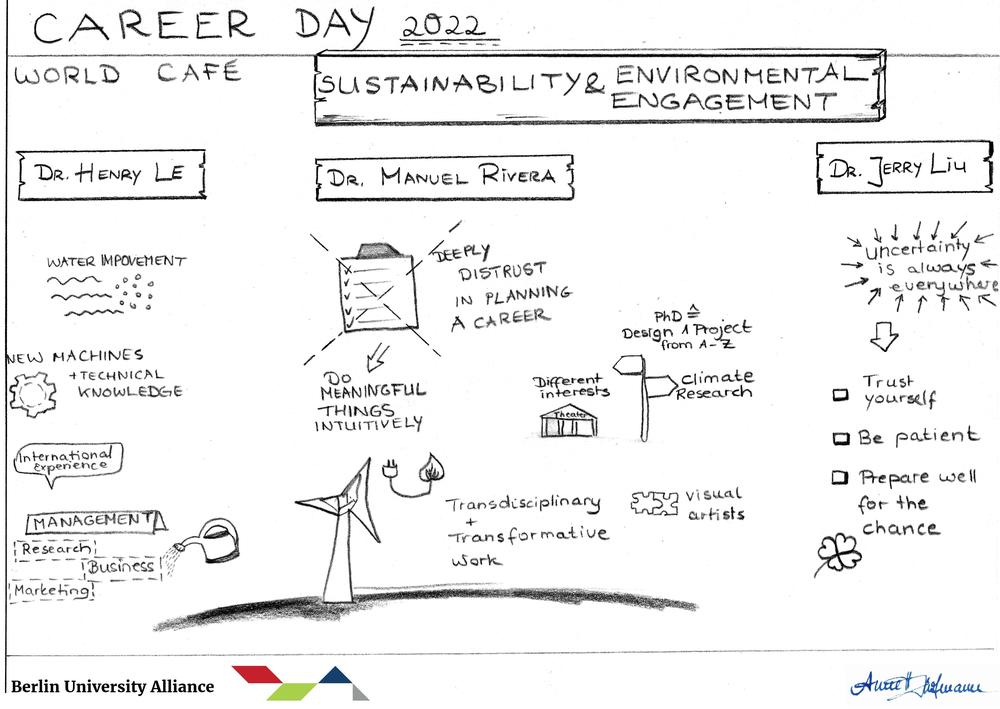 CAREER DAY 2022
WORLD CAFÉ
SUSTAINABILITY & ENVIRONMENTAL
ENGAGEMENT
DR. HENRY LE
WATER IMPOVEMENT
NEW MACHINES
+ TECHNICAL
KNOWLEDGE
International
Experience
MANAGEMENT
Research
Business
Marketing
DR. MANUEL RIVERA
DEEPLY
DISTRUST
IN PLANNING
A CAREER
DO
MEANINGFUL
THINGS
INTUITIVELY
PhD ≙
Design 1 Project
from A-Z
Different
interests
Theater
Climate
Research
Transdisciplinary
+
Transformative
Work
visual
artists
DR. JERRY LIU
Uncertainty
is always
everywhere
Trust
yourself
Be patient
Prepare well
for the
chance
Berlin University Alliance